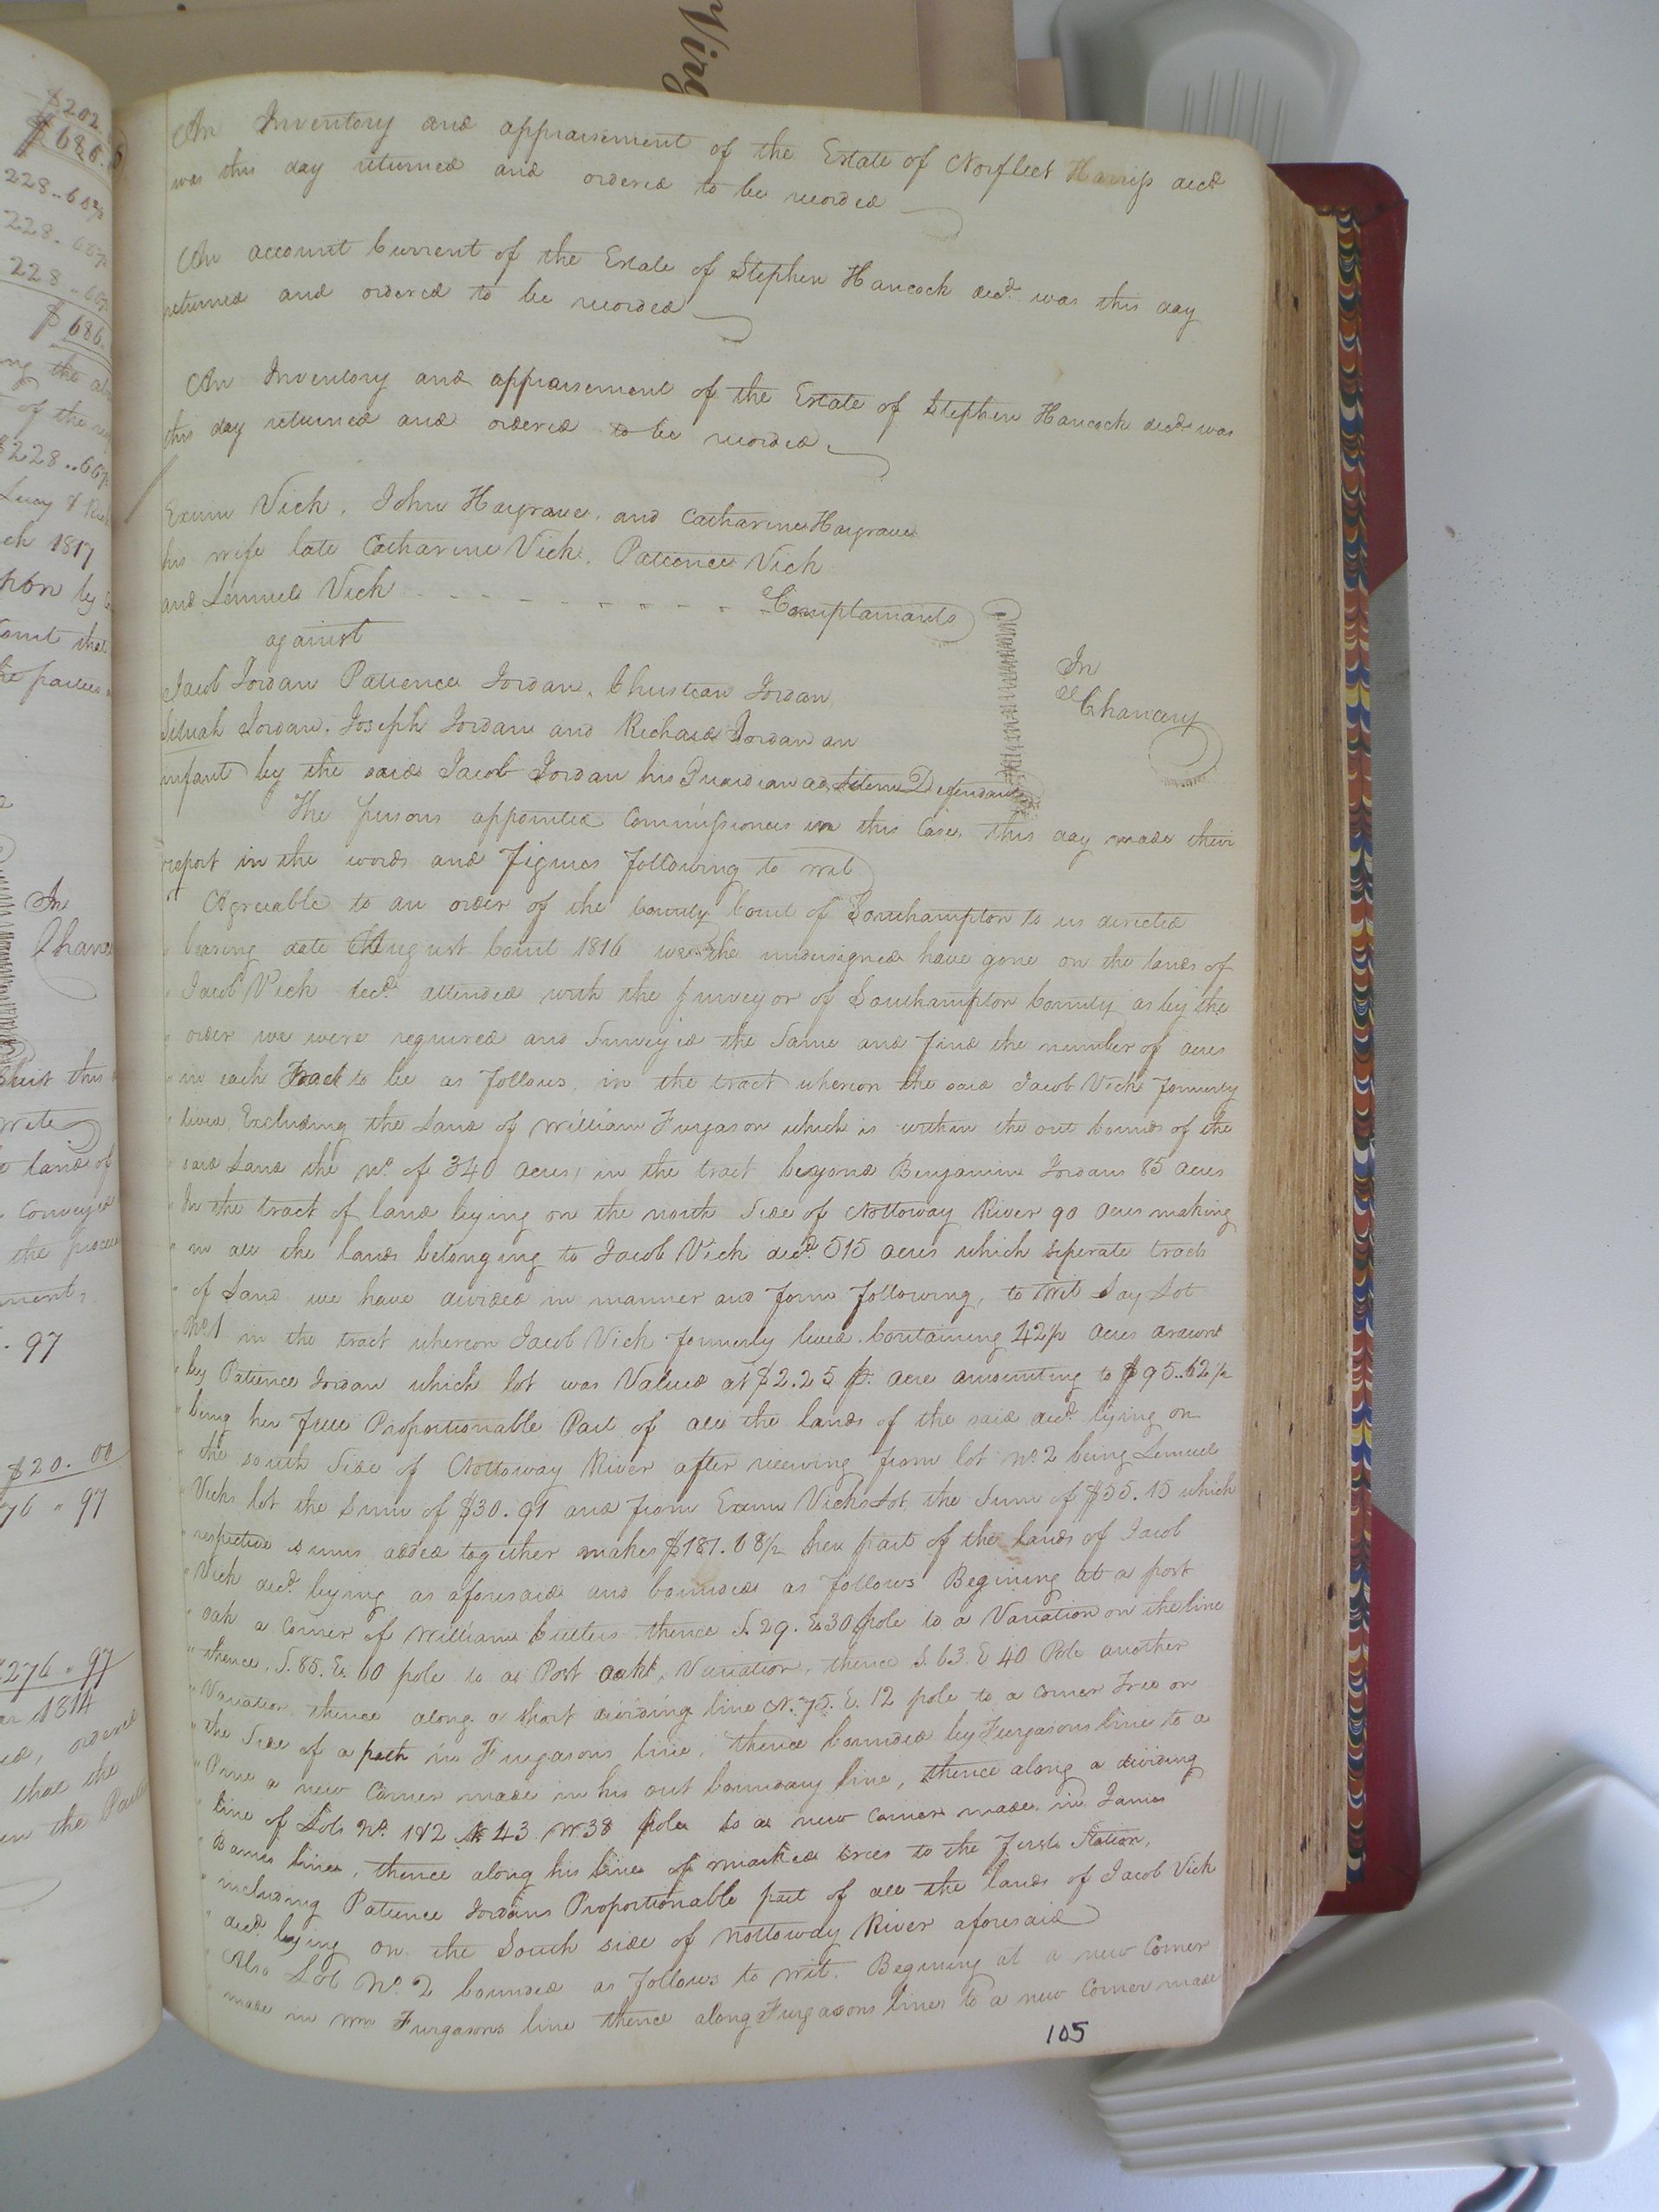 An Inventory and appraisement of the Estate of Norfleet Harriss decd
was this day returned and ordered to be recorded
An account Current of the Estate of Stephen Hancock decd. was this day
returned and ordered to be recorded
An Inventory and appraisement of the Estate of Stephen Hancock decd. was
this day returned and ordered to be recorded.
Exum Vick, John Hargrave, and Catharine Hargrave
his wife late Catharine Vick, Patience Vick
and Lemuel Vick - - - - - - - - - - Complainants
against
In
Chancery
Jacob Jordan Patience Jordan, Christian Jordan,
Jordan, Joseph Jordan and Richard Jordan an
infant by the said Jacob Jordan his Guardian ad litem Defendants
The persons appointed Commissioners in this Case, this day made their
report in the words and figures following to wit
Agreeable to an order of the County Court of Southampton to us directed
" bearing date August Court 1816 we the undersigned have gone on the lands of
" Jacob Vick decd. attended with the Surveyor of Southampton County as by the
" order we were required and Surveyed the Same and find the number of acres
" in each Tract to be as follows, in the tract whereon the said Jacob Vick formerly
" lived, Excluding the Land of William Furgason which is within the out bounds of the
" said Land the No. of 340 acres, in the tract beyond Benjamin Jordans 85 acres
" In the tract of land lying on the north Side of Nottoway River 90 acres making
" in all the lands belonging to Jacob Vick decd. 515 acres which seperate tracts
" of Land we have divided in manner and form following, to wit Say Lot
" No. 1 in the tract whereon Jacob Vick formerly lived Containing 42½ acres drawn
" by Patience Jordan which lot was Valued at $2.25 pr. acre amounting to $95..62½
" being her full Proportionable Part of all the lands of the said decd. lying on
" the south Side of Nottoway River after receiving from lot No. 2 being Lemuel
" Vicks lot the Sum of $30.91 and from Exum Vicks Lot the Sum of $55.15 which
" respective sums added together makes $181.68½ her part of the lands of Jacob
" Vick decd. lying as aforesaid and bounded as follows Begining at a post
" oak a Corner of William thence S. 29. E 30 pole to a Variation on the line
" thence, S. 85. E. 60 pole to a Post oak, Variation, thence S. 63. E 40 Pole another
" Variation thence along a short dividing line N. 75. E. 12 pole to a Corner Tree on
" the Side of a path in Furgasons line, thence bounded by Furgasons line to a
" Pine a new Corner made in his out boundary line, thence along a dividing
" line of Lots No. 1 & 2 N 43 W 38 pole to a new Corner made in James
" Barnes line, thence along his line of marked trees to the first Station,
" including Patience Jordans Proportionable part of all the lands of Jacob Vick
" decd. lying on the South side of Nottoway River aforesaid
" Also Lot No. 2 bounded as follows to wit. Begining at a new Corner
" made in Wm Furgasons line thence along Furgasons lines to a new Corner made
105